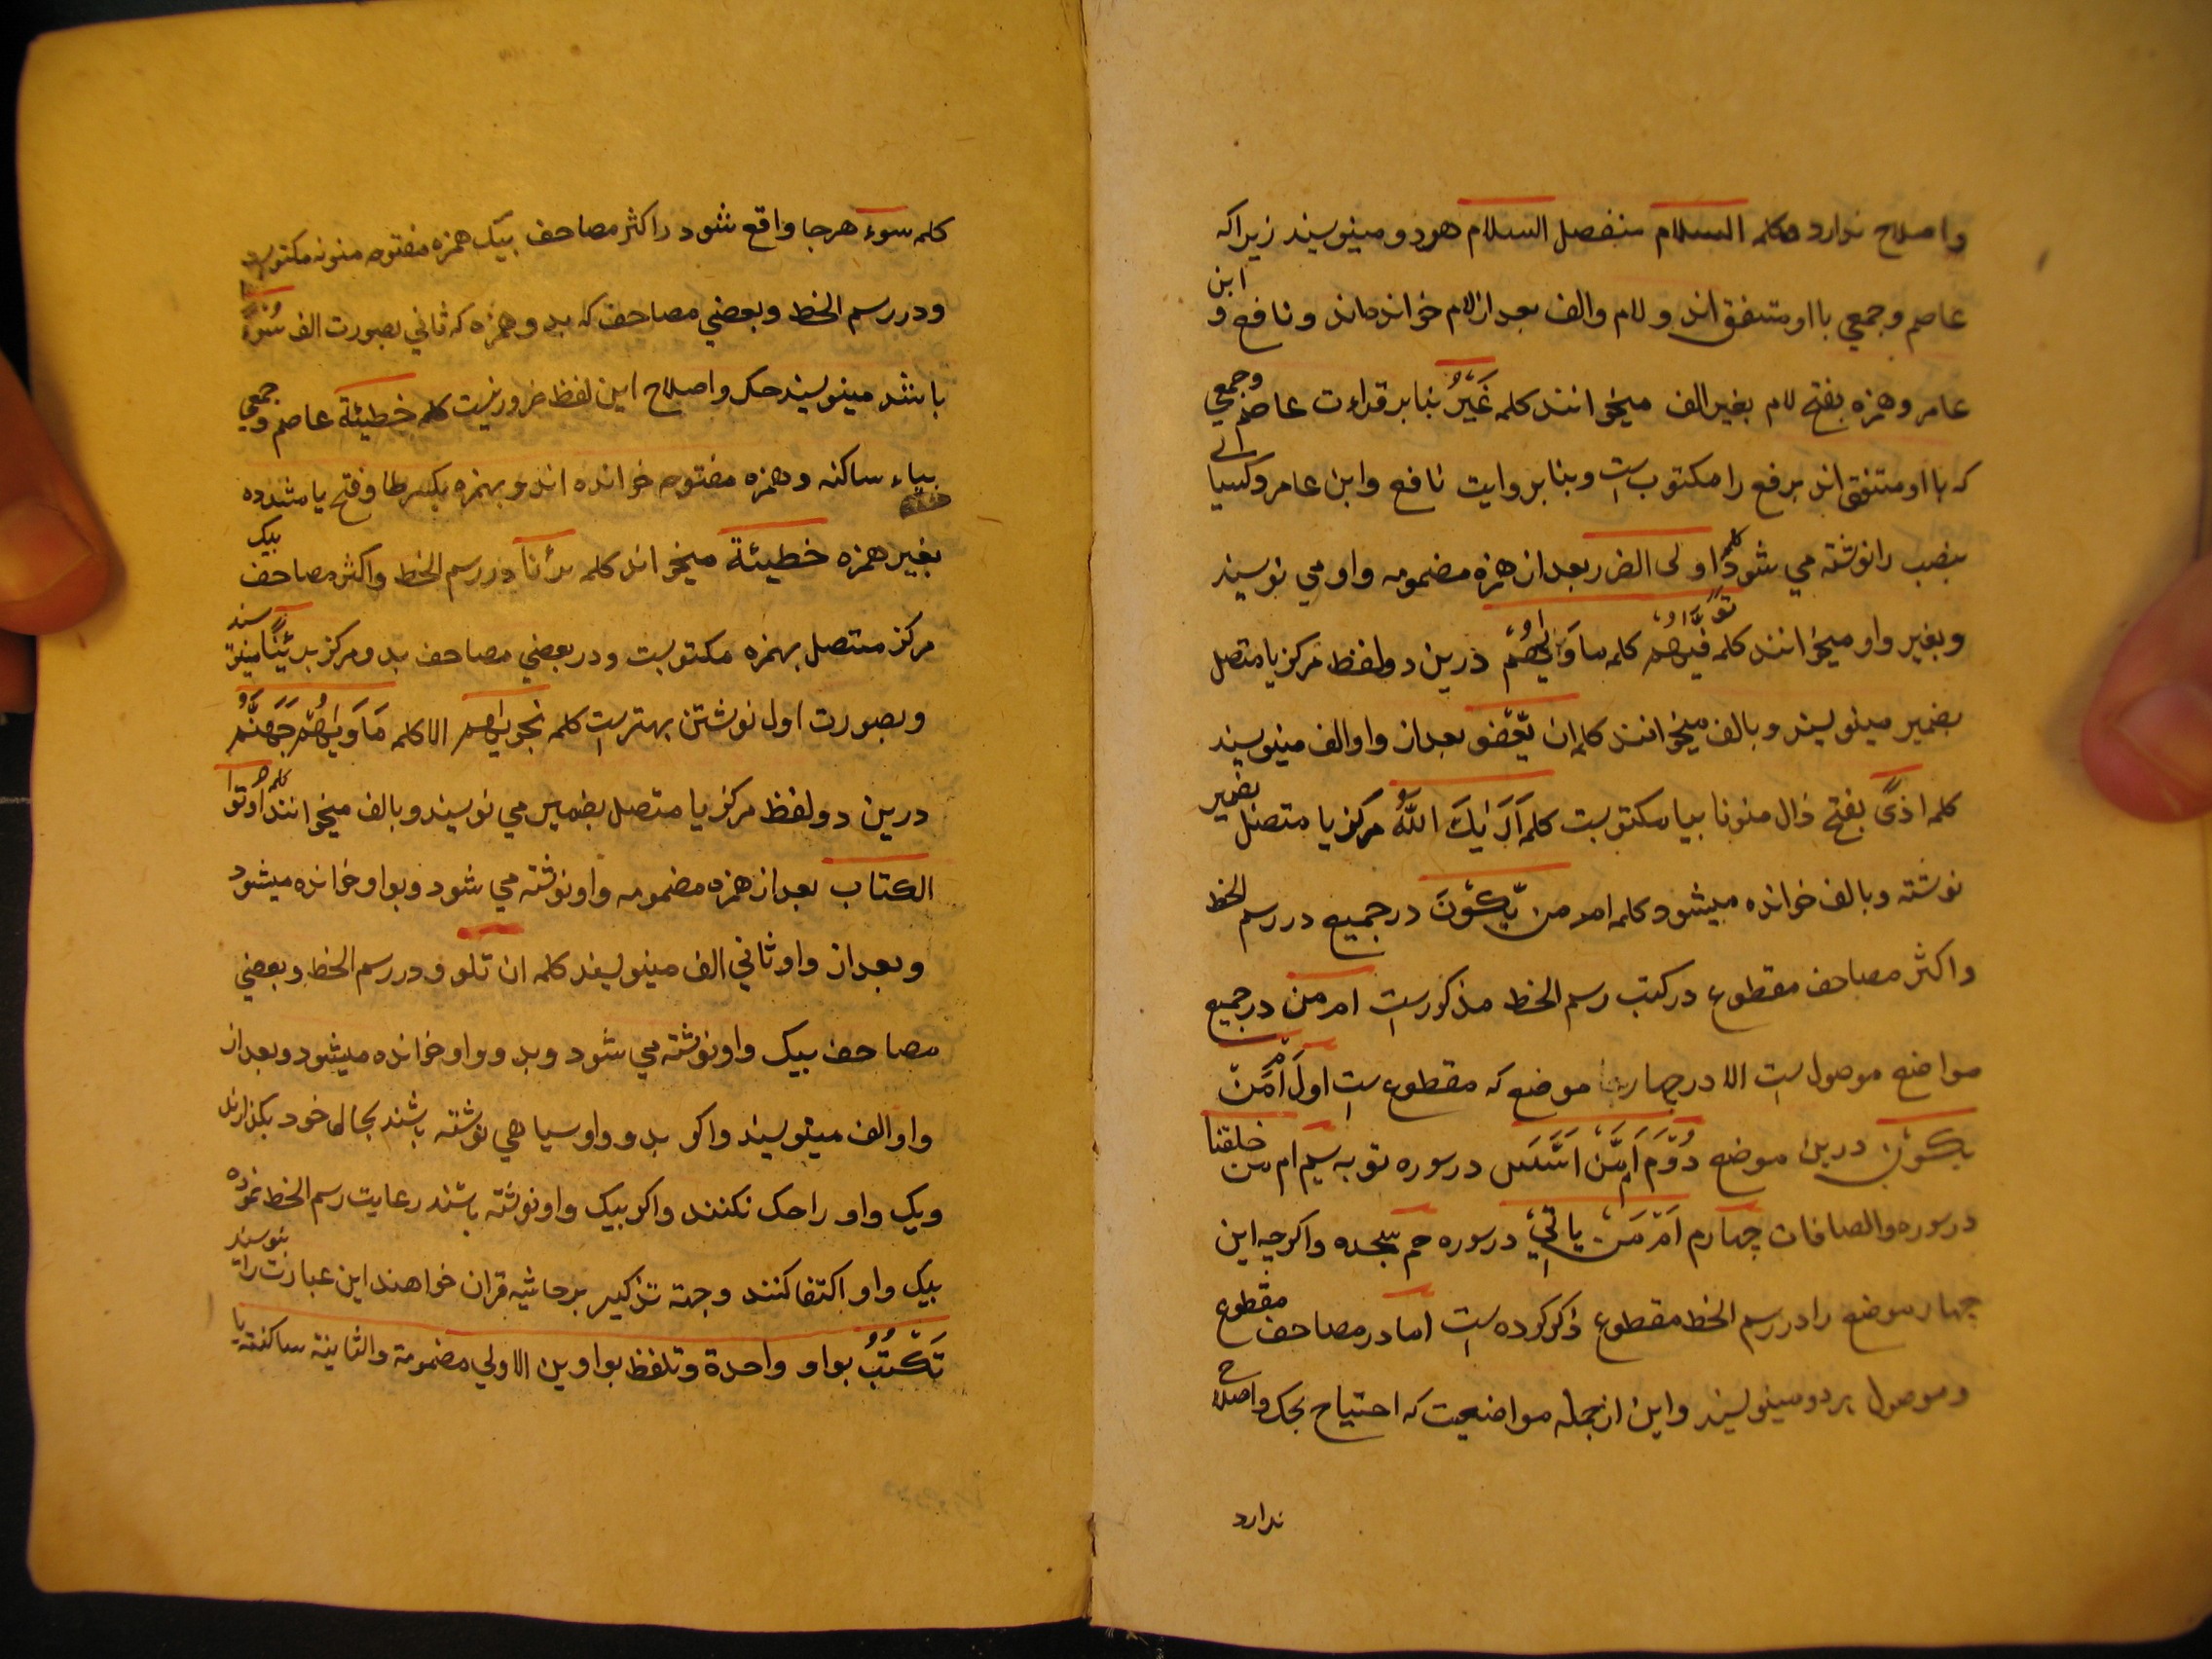 واصلاح ندارد وكلمه السلام منفصل السلام هردو مينويسند زيراكه
عاصم وجمعي با او متفق اند و لام والف بعد از لام خوانده اند و نافع و ابن
عامر وهمزه بفتح لام بغير الف ميخوانند كلمه غَيْرُ بنا بر قراءت عاصم وجمعي
كه با او متفق اند برفع را مكتوب ست وبنا بر روايت نافع وابن عامر وكسائي
بنصب را نوشته مي شود كلمه اولى الضرر بعد از همزه مضمومه واو مي نويسند
وبغير واو ميخوانند كلمه كلمه مأويهم درين دو لفظ مركز يا متصل
بضمير مينويسند وبالف ميخوانند كلمه ان يعفو بعد از واو الف مينويسند
كلمه اذًى بفتح ذال منونا بيا مكتوبست كلمه اَرَيٰكَ اللّٰهُ مركز يا متصل بضمير
نوشته وبالف خوانده ميشود كلمه ام من يَّكُوْنَ در جميع در رسم الخط
واكثر مصاحف مقطوع در كتب رسم الخط مذكور ست ام من در جميع
مواضع موصول ست الا در چهار موضع كه مقطوع ست اول اَمْ مَّنْ
يكون درين موضع دُوُّم اَمْ مَّنْ اَسَّسَ در سوره توبه سيم ام من خلقنا
در سوره والصافات چهارم اَمْ مَنْ ياتي در سوره حم سجده واكرچه اين
چهار موضع را در رسم الخط مقطوع ذكر كرده ست اما در مصاحف مقطوع
وموصول هردو مينويسند واين از جمله مواضعيست كه احتياج بحك واصلاح
ندارد
كلمه سوء هرجا واقع شود در اكثر مصاحف بيك همزه مفتوحه منونه مكتوبست
ودر رسم الخط وبعضي مصاحف كه بدو همزه كه ثاني بصورت الف سُوْءًا
باشد مينويسند حك واصلاح اين لفظ ضرور نيست كلمه خطيئة عاصم وجمعي
بياء ساكنه وهمزه مفتوحه خوانده اند و بهمزه بكسر طا وفتح يا مشدده
بغير همزه خطيئة ميخواند كلمه در رسم الخط واكثر مصاحف بيك
مركز متصل بهمزه مكتوبست ودر بعضي مصاحف بدو مركز مينويسند
وبصورت اول نوشتن بهتر ست كلمه نجويهم الا كلمه مَأْوٰيهُمْ جَهَنَّمُ
درين دو لفظ مركز يا متصل بضمير مي نويسند وبالف ميخوانند كلمه اُوتوا
الكتاب بعد از همزه مضمومه واو نوشته مي شود وبواو خوانده ميشود
وبعد از واو ثاني الف مينويسند كلمه ان تلوو در رسم الخط وبعضي
مصاحف بيك واو نوشته مي شود وبدو واو خوانده ميشود وبعد از
واو الف مينويسند واكر بدو واو سياهي نوشته باشند بحال خود بكذارند
ويك واو را حك نكنند واكر بيك واو نوشته باشند رعايت رسم الخط نموده
بيك واو اكتفا كنند وجهة تذكير بر حاشيه قران خواهند اين عبارت را بنويسند
تَكْتُبُ بواو واحدة وتلفظ بواوين الاولي مضمومة والثانية ساكنة